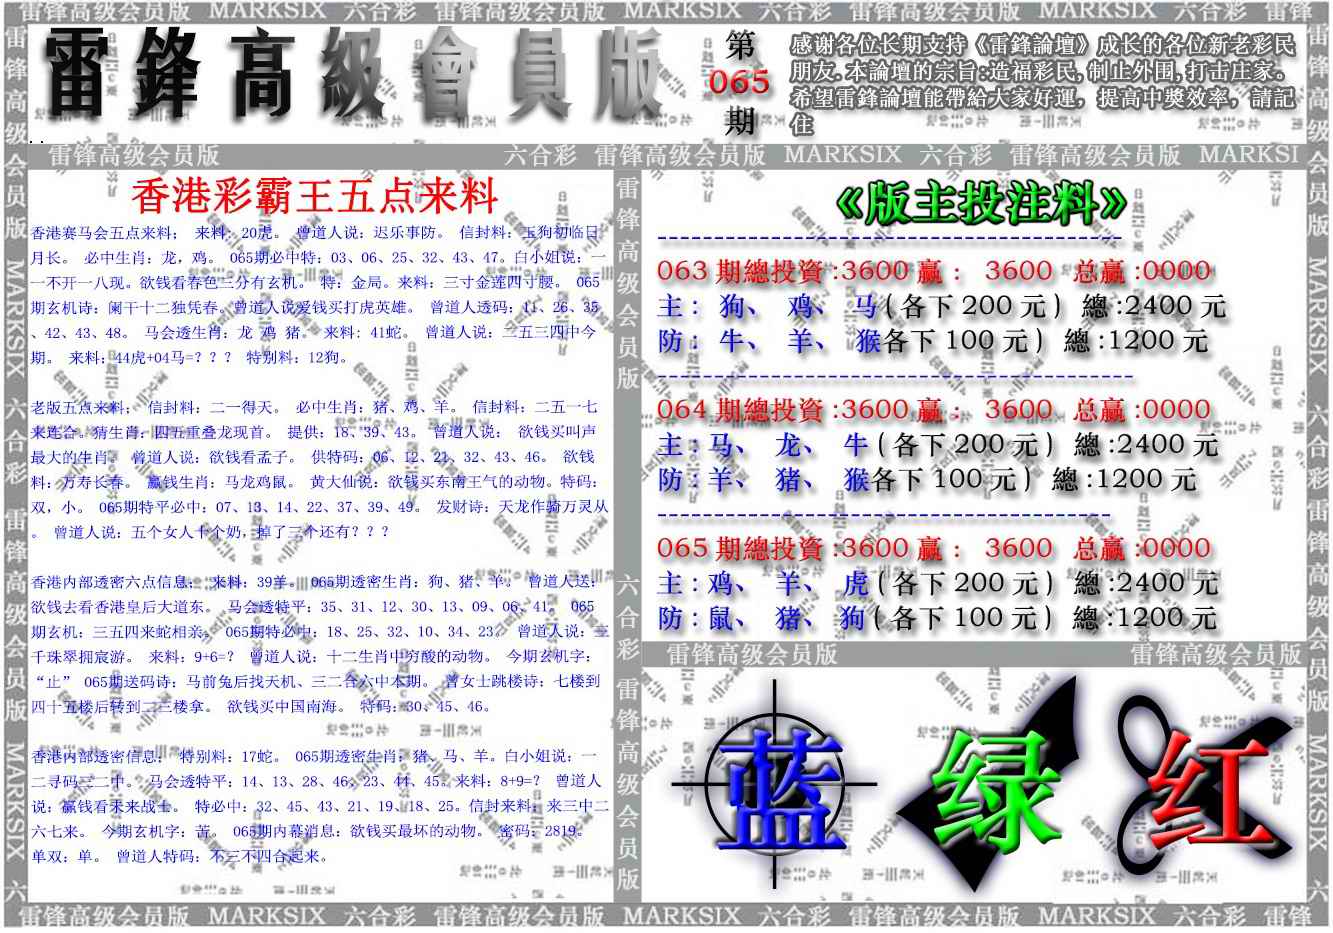 雷锋高级会员版 MARKSIX 六合彩 雷锋高级会员版 MARKSIX 六合彩 雷锋高级会员版 MARKSIX 六合彩 雷锋
雷鋒高級會員版
第
065
期
感谢各位长期支持《雷鋒論壇》成长的各位新老彩民
朋友.本論壇的宗旨:造福彩民,制止外围,打击庄家。
希望雷鋒論壇能帶給大家好運，提高中獎效率，請記
住
雷锋高级会员版 六合彩 雷锋高级会员版 MARKSIX 六合彩 雷锋高级会员版 MARKSI
香港彩霸王五点来料
香港赛马会五点来料； 来料：20虎。 曾道人说：迟乐事防。 信封料：玉狗初临日
月长。 必中生肖：龙，鸡。 065期必中特：03、06、25、32、43、47。白小姐说：一
一不开一八现。欲钱看春色三分有玄机。 特：金局。来料：三寸金莲四寸腰。 065
期玄机诗：阑干十二独凭春。曾道人说爱钱买打虎英雄。 曾道人透码：11、26、35
、42、43、48。 马会透生肖：龙 鸡 猪。 来料：41蛇。 曾道人说：二五三四中今
期。 来料：44虎+04马=？？？ 特别料：12狗。
老版五点来料； 信封料：二一得天。 必中生肖：猪、鸡、羊。 信封料：二五一七
来连合。猜生肖：四五重叠龙现首。 提供：18、39、43。 曾道人说： 欲钱买叫声
最大的生肖。 曾道人说：欲钱看孟子。 供特码：06、12、21、32、43、46。 欲钱
料：万寿长春。 赢钱生肖：马龙鸡鼠。 黄大仙说：欲钱买东南王气的动物。特码：
双，小。 065期特平必中：07、13、14、22、37、39、49。 发财诗：天龙作骑万灵从
。 曾道人说：五个女人十个奶，掉了三个还有？？？
香港内部透密六点信息； 来料：39羊。 065期透密生肖：狗、猪、羊。 曾道人送：
欲钱去看香港皇后大道东。 马会透特平：35、31、12、30、13、09、06、41。 065
期玄机：三五四来蛇相亲。 065期特必中：18、25、32、10、34、23。 曾道人说：三
千珠翠拥宸游。 来料：9+6=？ 曾道人说：十二生肖中穷酸的动物。 今期玄机字：
“止” 065期送码诗：马前兔后找天机、三二合六中本期。 曾女士跳楼诗：七楼到
四十五楼后转到二三楼拿。 欲钱买中国南海。 特码：30、45、46。
香港内部透密信息； 特别料：17蛇。 065期透密生肖：猪、马、羊。白小姐说：一
二寻码三二中。 马会透特平：14、13、28、46、23、44、45。来料：8+9=？ 曾道人
说：赢钱看未来战士。 特必中：32、45、43、21、19、18、25。信封来料：来三中二
六七来。 今期玄机字：苦。 065期内幕消息：欲钱买最坏的动物。 密码：2819。
单双：单。 曾道人特码：不三不四合起来。
《版主投注料》
063 期總投資 :3600 赢： 3600 总赢 :0000
主： 狗、 鸡、 马( 各下 200 元 ) 總 :2400 元
防： 牛、 羊、 猴各下 100 元 ) 總 :1200 元
064 期總投資 :3600 赢： 3600 总赢 :0000
主：马、 龙、 牛 ( 各下 200 元 ) 總 :2400 元
防：羊、 猪、 猴各下 100 元 ) 總 :1200 元
065 期總投資 :3600 赢： 3600 总赢 :0000
主：鸡、 羊、 虎 ( 各下 200 元 ) 總 :2400 元
防：鼠、 猪、 狗 ( 各下 100 元 ) 總 :1200 元
雷锋高级会员版 雷锋高级会员版
蓝 绿 红
雷锋高级会员版 MARKSIX 六合彩 雷锋高级会员版 MARKSIX 六
雷锋高级会员版 六合彩 雷锋高级会员版
雷锋高级会员版 MARKSIX 六合彩 雷锋高级会员版 MARKSIX 六
雷锋高级会员版 MARKSIX 六合彩 雷锋高级会员版 MARKSIX 六合彩 雷锋高级会员版 MARKSIX 六合彩 雷锋